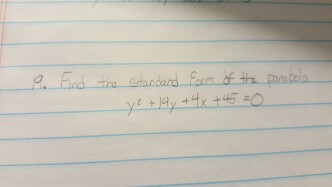 19. Find the standard form of the parabola
y² + 14y + 4x + 45 = 0